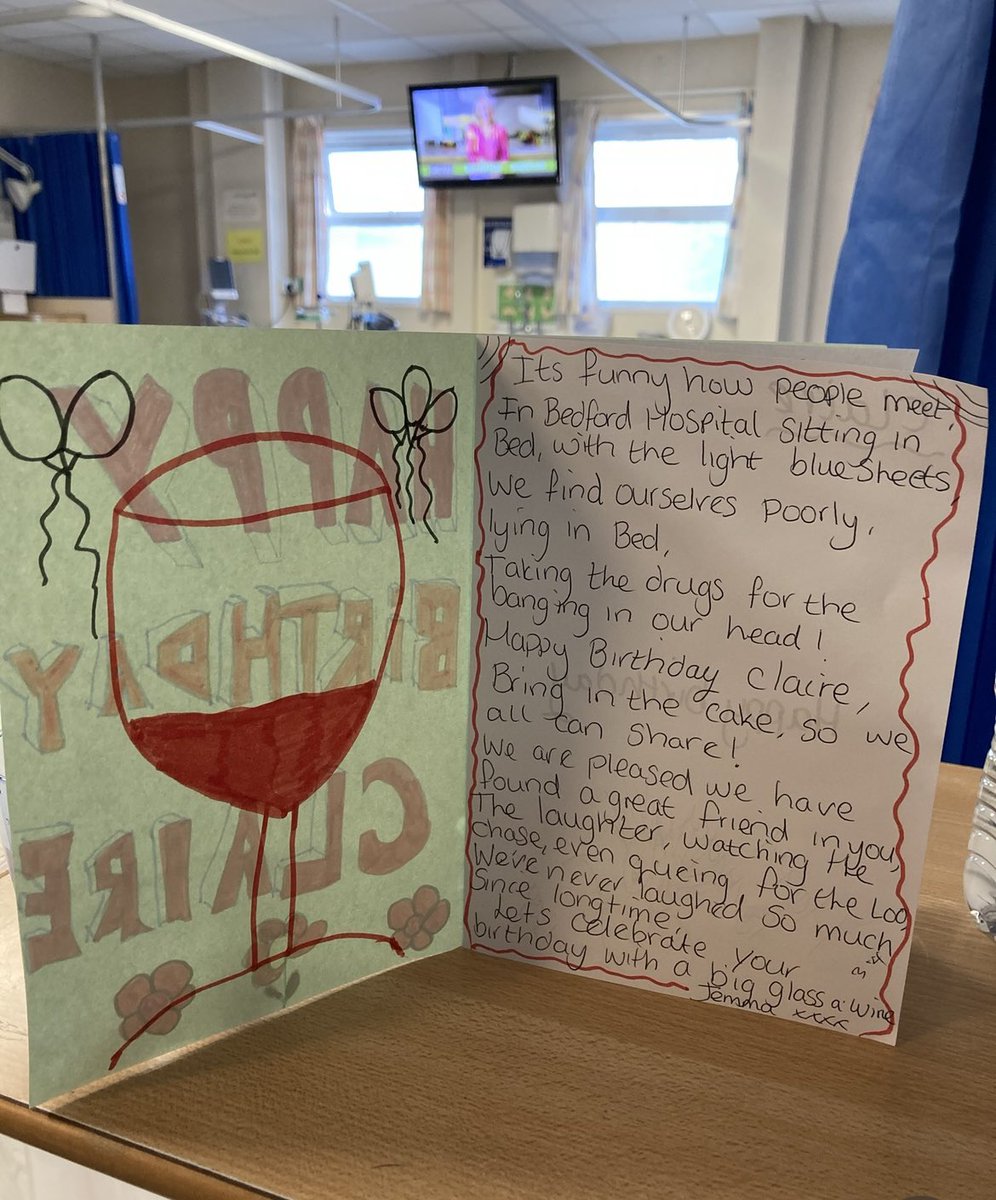 HAPPY
BIRTHDAY
CLAIRE
Its funny how people meet,
In Bedford Hospital sitting in
Bed, with the light blue sheets,
We find ourselves poorly,
lying in Bed,
Taking the drugs for the
banging in our head!
Happy Birthday Claire,
Bring in the cake, so we
all can share!
We are pleased we have
found a great friend in you,
The laughter, watching the
chase, even queing for the Loo,
We've never laughed so much
Since longtime,
Lets celebrate your
birthday with a big glass a wine
Jemma xxxx